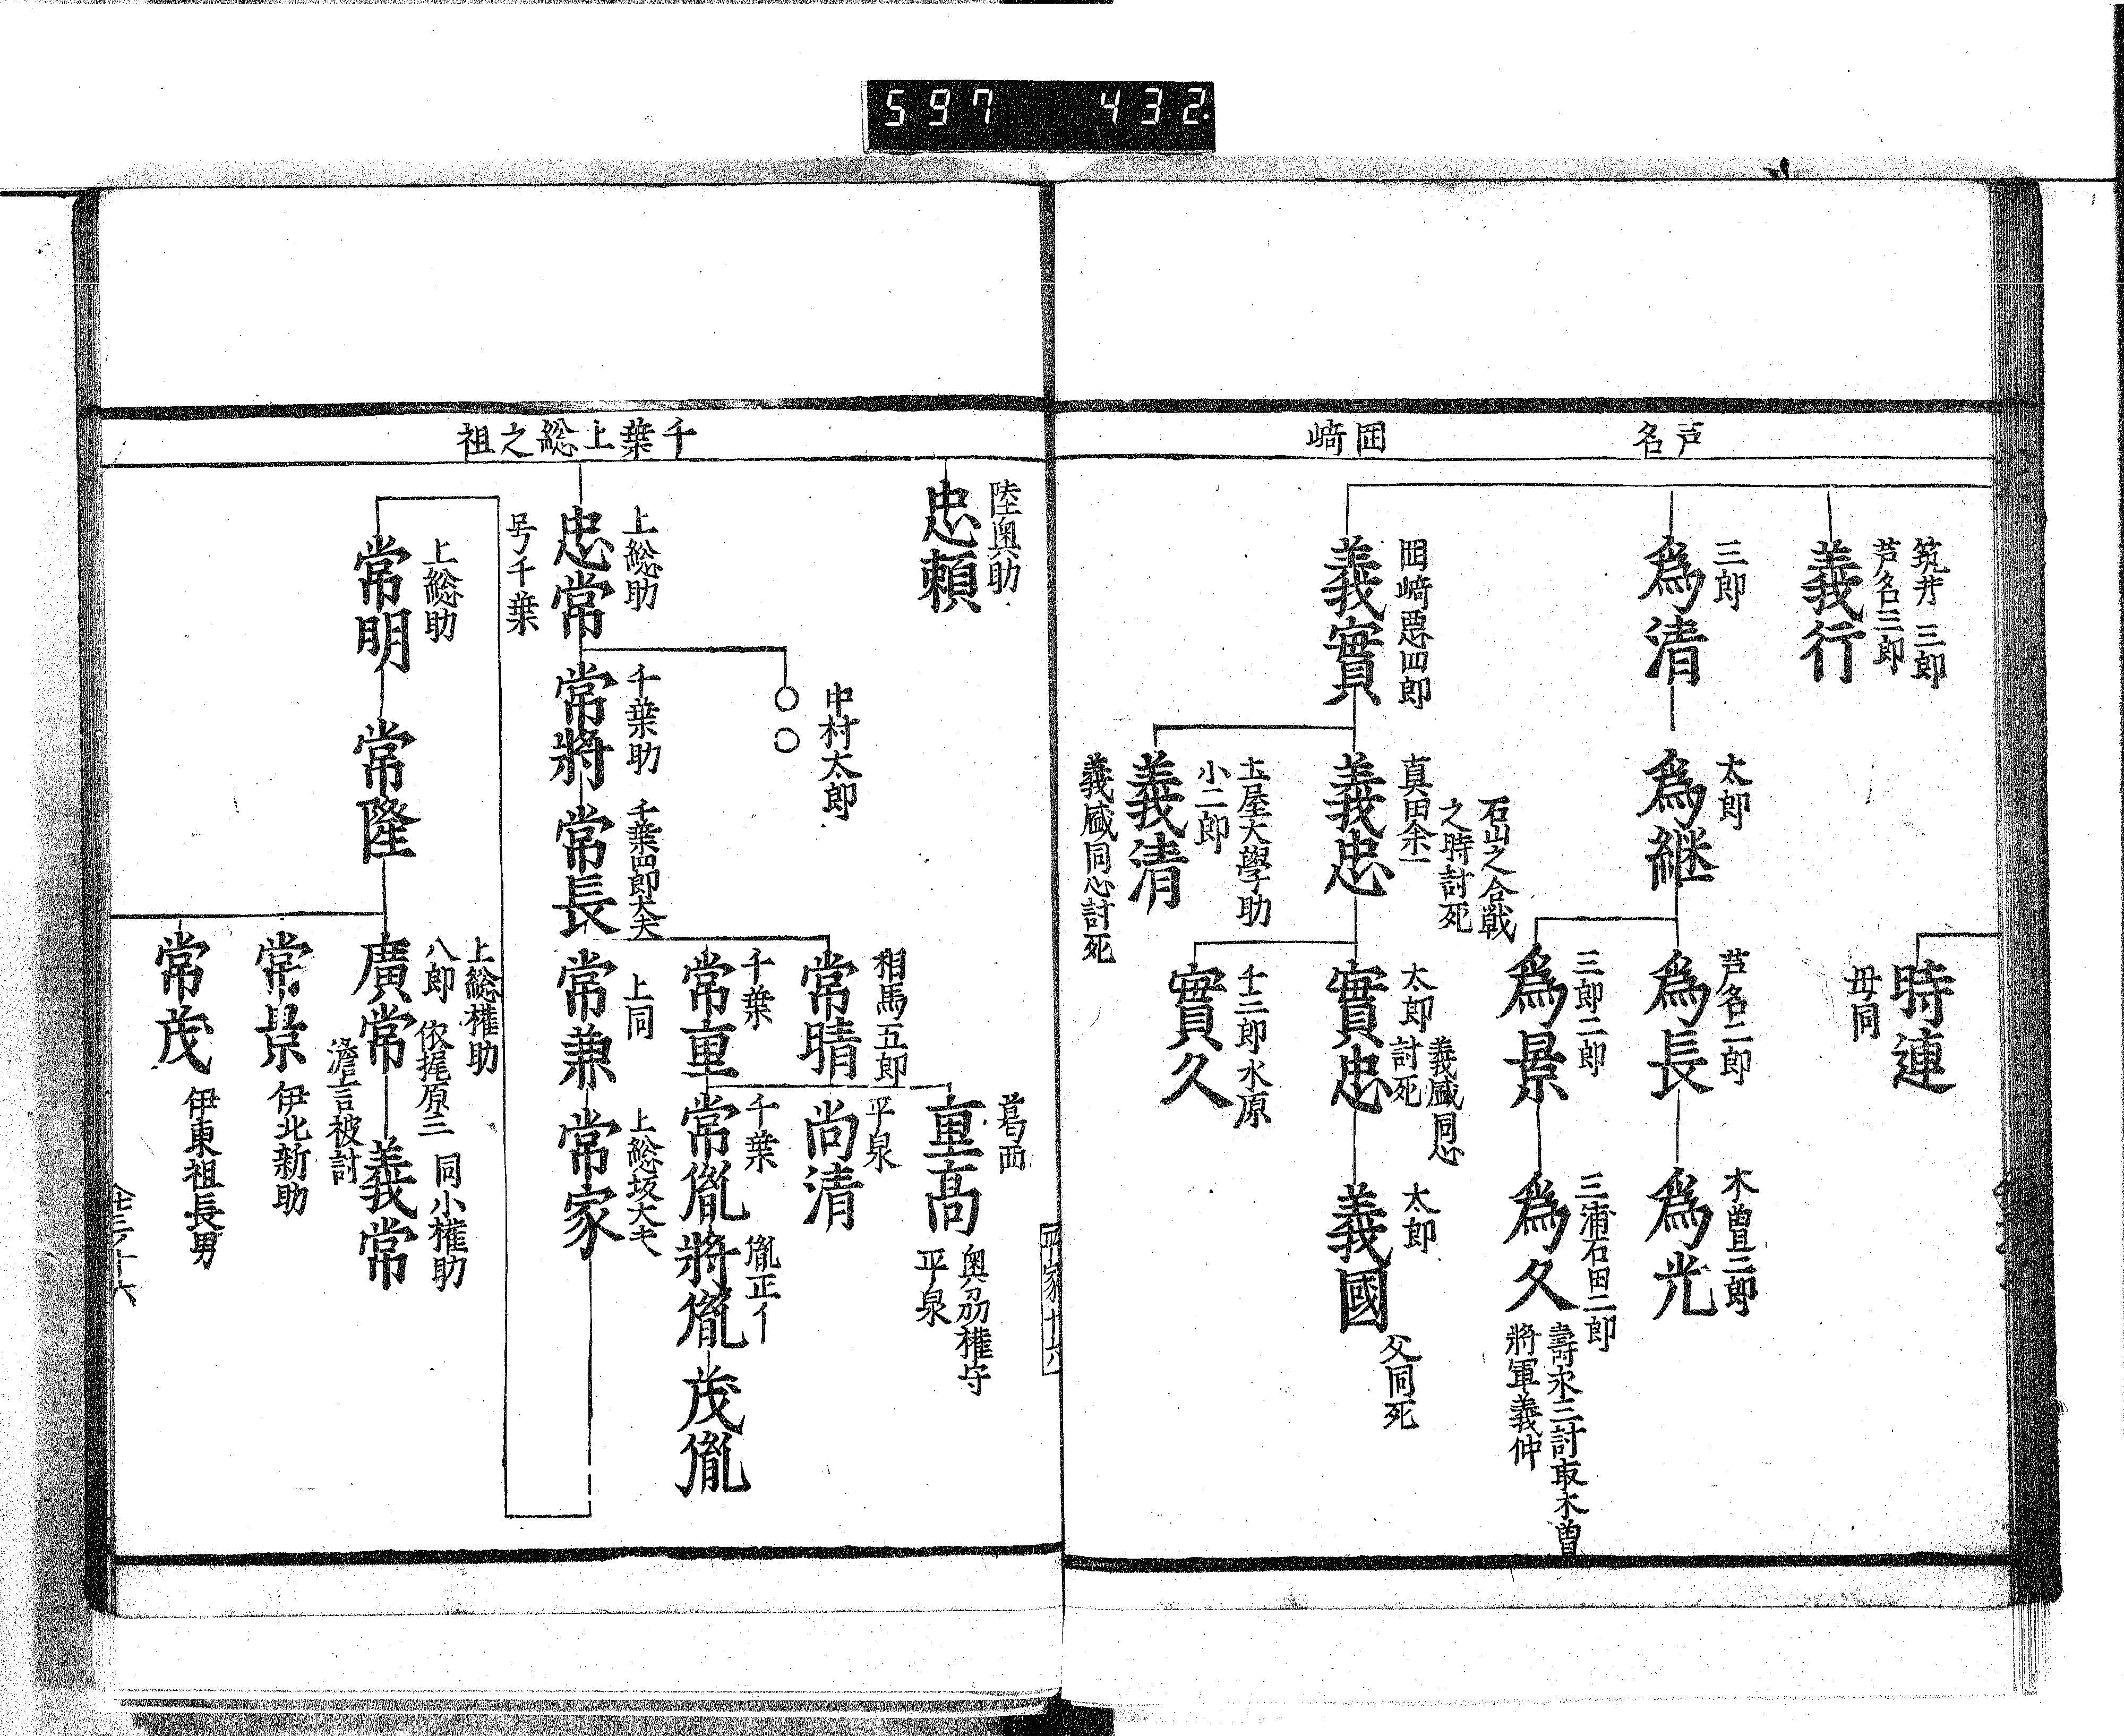 597 432
芦名
筑井三郎
芦名三郎
義行
時連
母同
三郎
爲清
太郎
爲継
芦名二郎
爲長
木曽三郎
爲光
三郎二郎
爲景
三浦石田二郎
爲久
壽永三討取木曽
將軍義仲
岡﨑
岡﨑悪四郎
義實
石山之合戦
之時討死
真田余一
義忠
太郎
義盛同心
討死
實忠
太郎
義國
父同死
土屋大學助
小二郎
義清
義盛同心討死
十三郎水原
實久
平家十六
千葉上総之祖
陸奥助
忠頼
上総助
忠常
号千葉
中村太郎
○○
千葉助
常將
千葉四郎大夫
常長
相馬五郎
常晴
千葉
常重
葛西
重高
奥刕権守
平泉
平泉
尚清
千葉
常胤
胤正イ
將胤
茂胤
上同
常兼
上総坂大夫
常家
上総助
常明
常隆
上総権助
八郎
依梶原三
讒言被討
廣常
同小権助
義常
常景
伊北新助
常茂
伊東祖長男